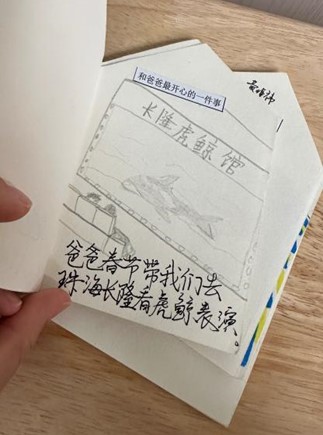 和爸爸最开心的一件事
长隆虎鲸馆
爸爸春节带我们去
珠海长隆看虎鲸表演